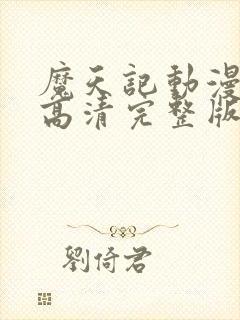 魔天記動漫
高清完整版
劉倚君